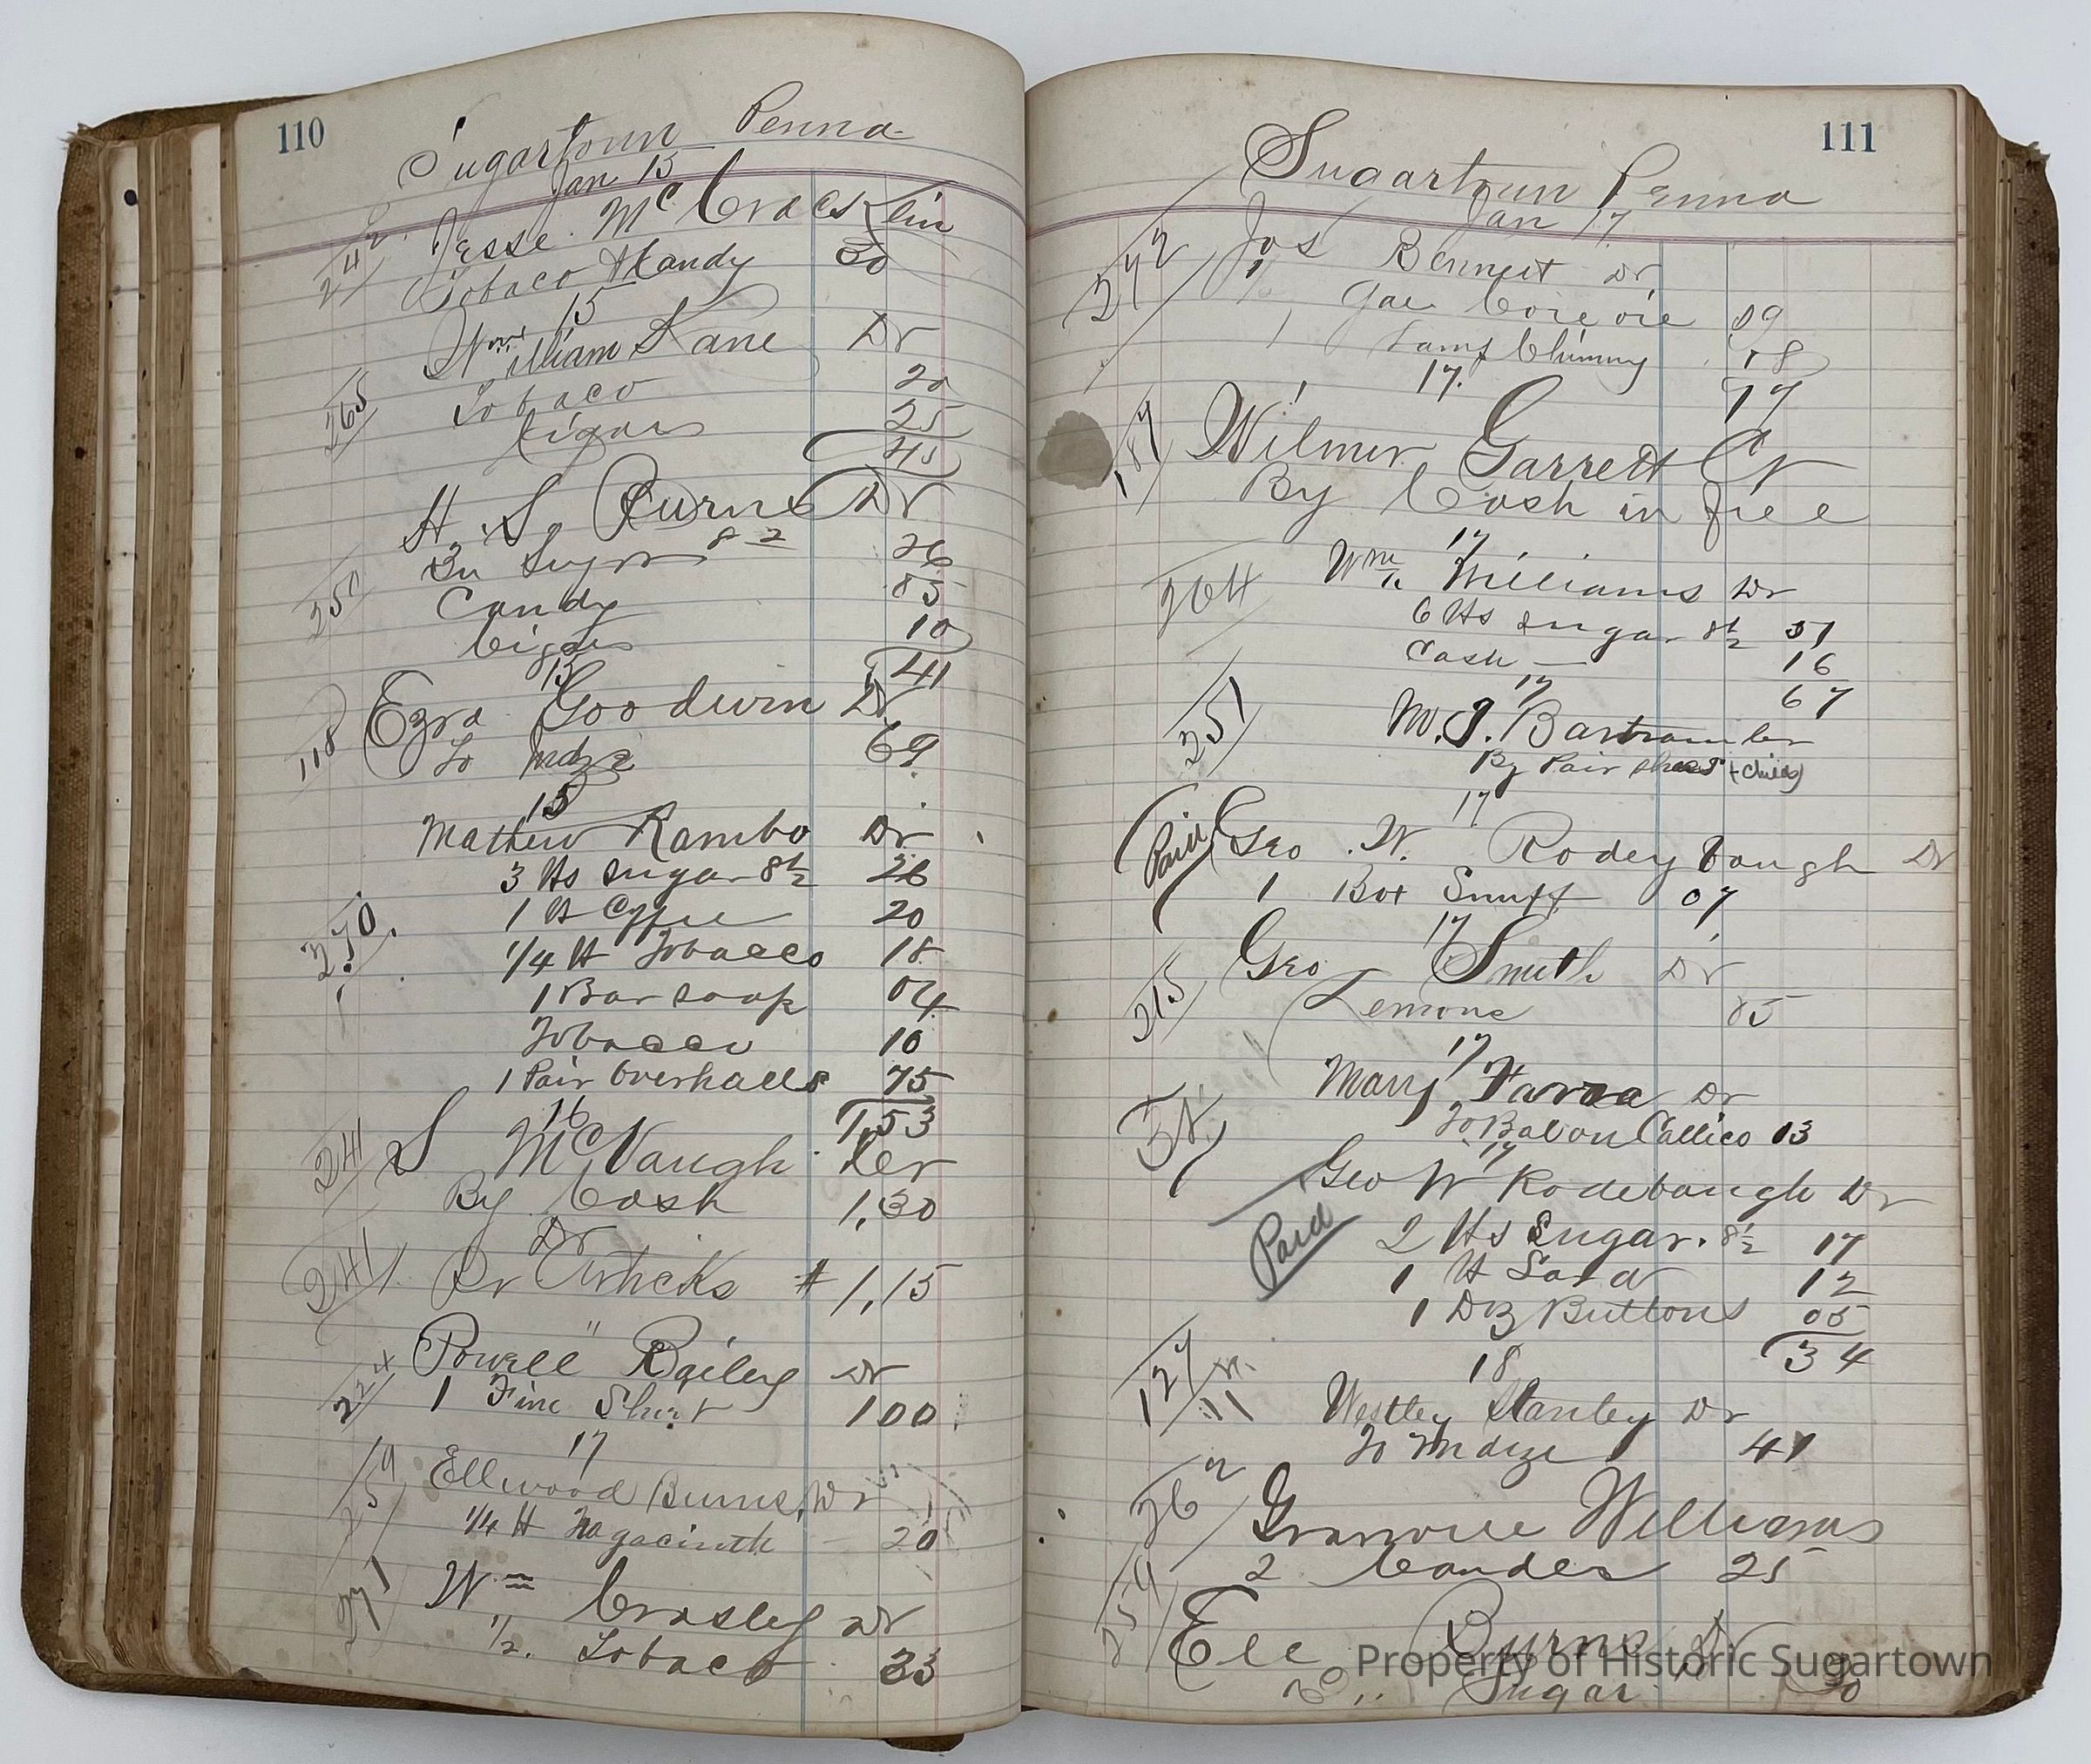 110
Sugartown Penna
Jan 15
242 Jesse McCracklin
Tobaco & Kandy 30
15
William Kane Dr
265 Tobaco 20
Cigars 25
45
H. S. Burns Dr
Sugar 8 1/2 26
250 Candy 05
Cigars 10
41
15
118 Ezra Goodwin Dr
To Mdze 69
15
Mathew Rambo Dr
3 lbs Sugar 8 1/2 26
270. 1 lb Coffee 20
1/4 lb Tobacco 18
1 Bar soap 04
Tobacco 10
1 Pair Overhalls 75
1,53
16
241 S McVaugh Cr
By Cosh 1,30
Dr
241 # 1,15
"
224 Powell Bailey Dr
1 Fine Shirt 100
17
259 Ellwood Burns, Dr
1/4 lb 20
271 Wm Crosley Dr
1/2. Tobaco 33
111
Sugartown Penna
Jan 17
272 Jos Bennett Dr,
1 Gal Coie oie 09
1 Lamp Chimny 08
17
17.
187 Wilmer Garrett Cr
By Cosh in free
17
264 Wm Williams Dr
6 lbs sugar 8 1/2 51
Cash — 16
67
17
251 M. J. Bartram Cr
By Pair shoes (Child)
17
Paid Geo. W. Rodeybough Dr
1 Box Snuff 07
17
215 Geo Smith Dr
Lemons 05
17
Mary Dr
To Bal on Callico 13
17
Geo W Rodebough Dr
Paid 2 lbs Sugar. 8 1/2 17
1 lb Lard 12
1 Doz Buttons 05
34
18
127 Westley Stanley Dr
11 To Mdze 41
262 Granvill Williams
2 Candes 25
259 Ell Byrns Dr
Sugar
Property of Historic Sugartown